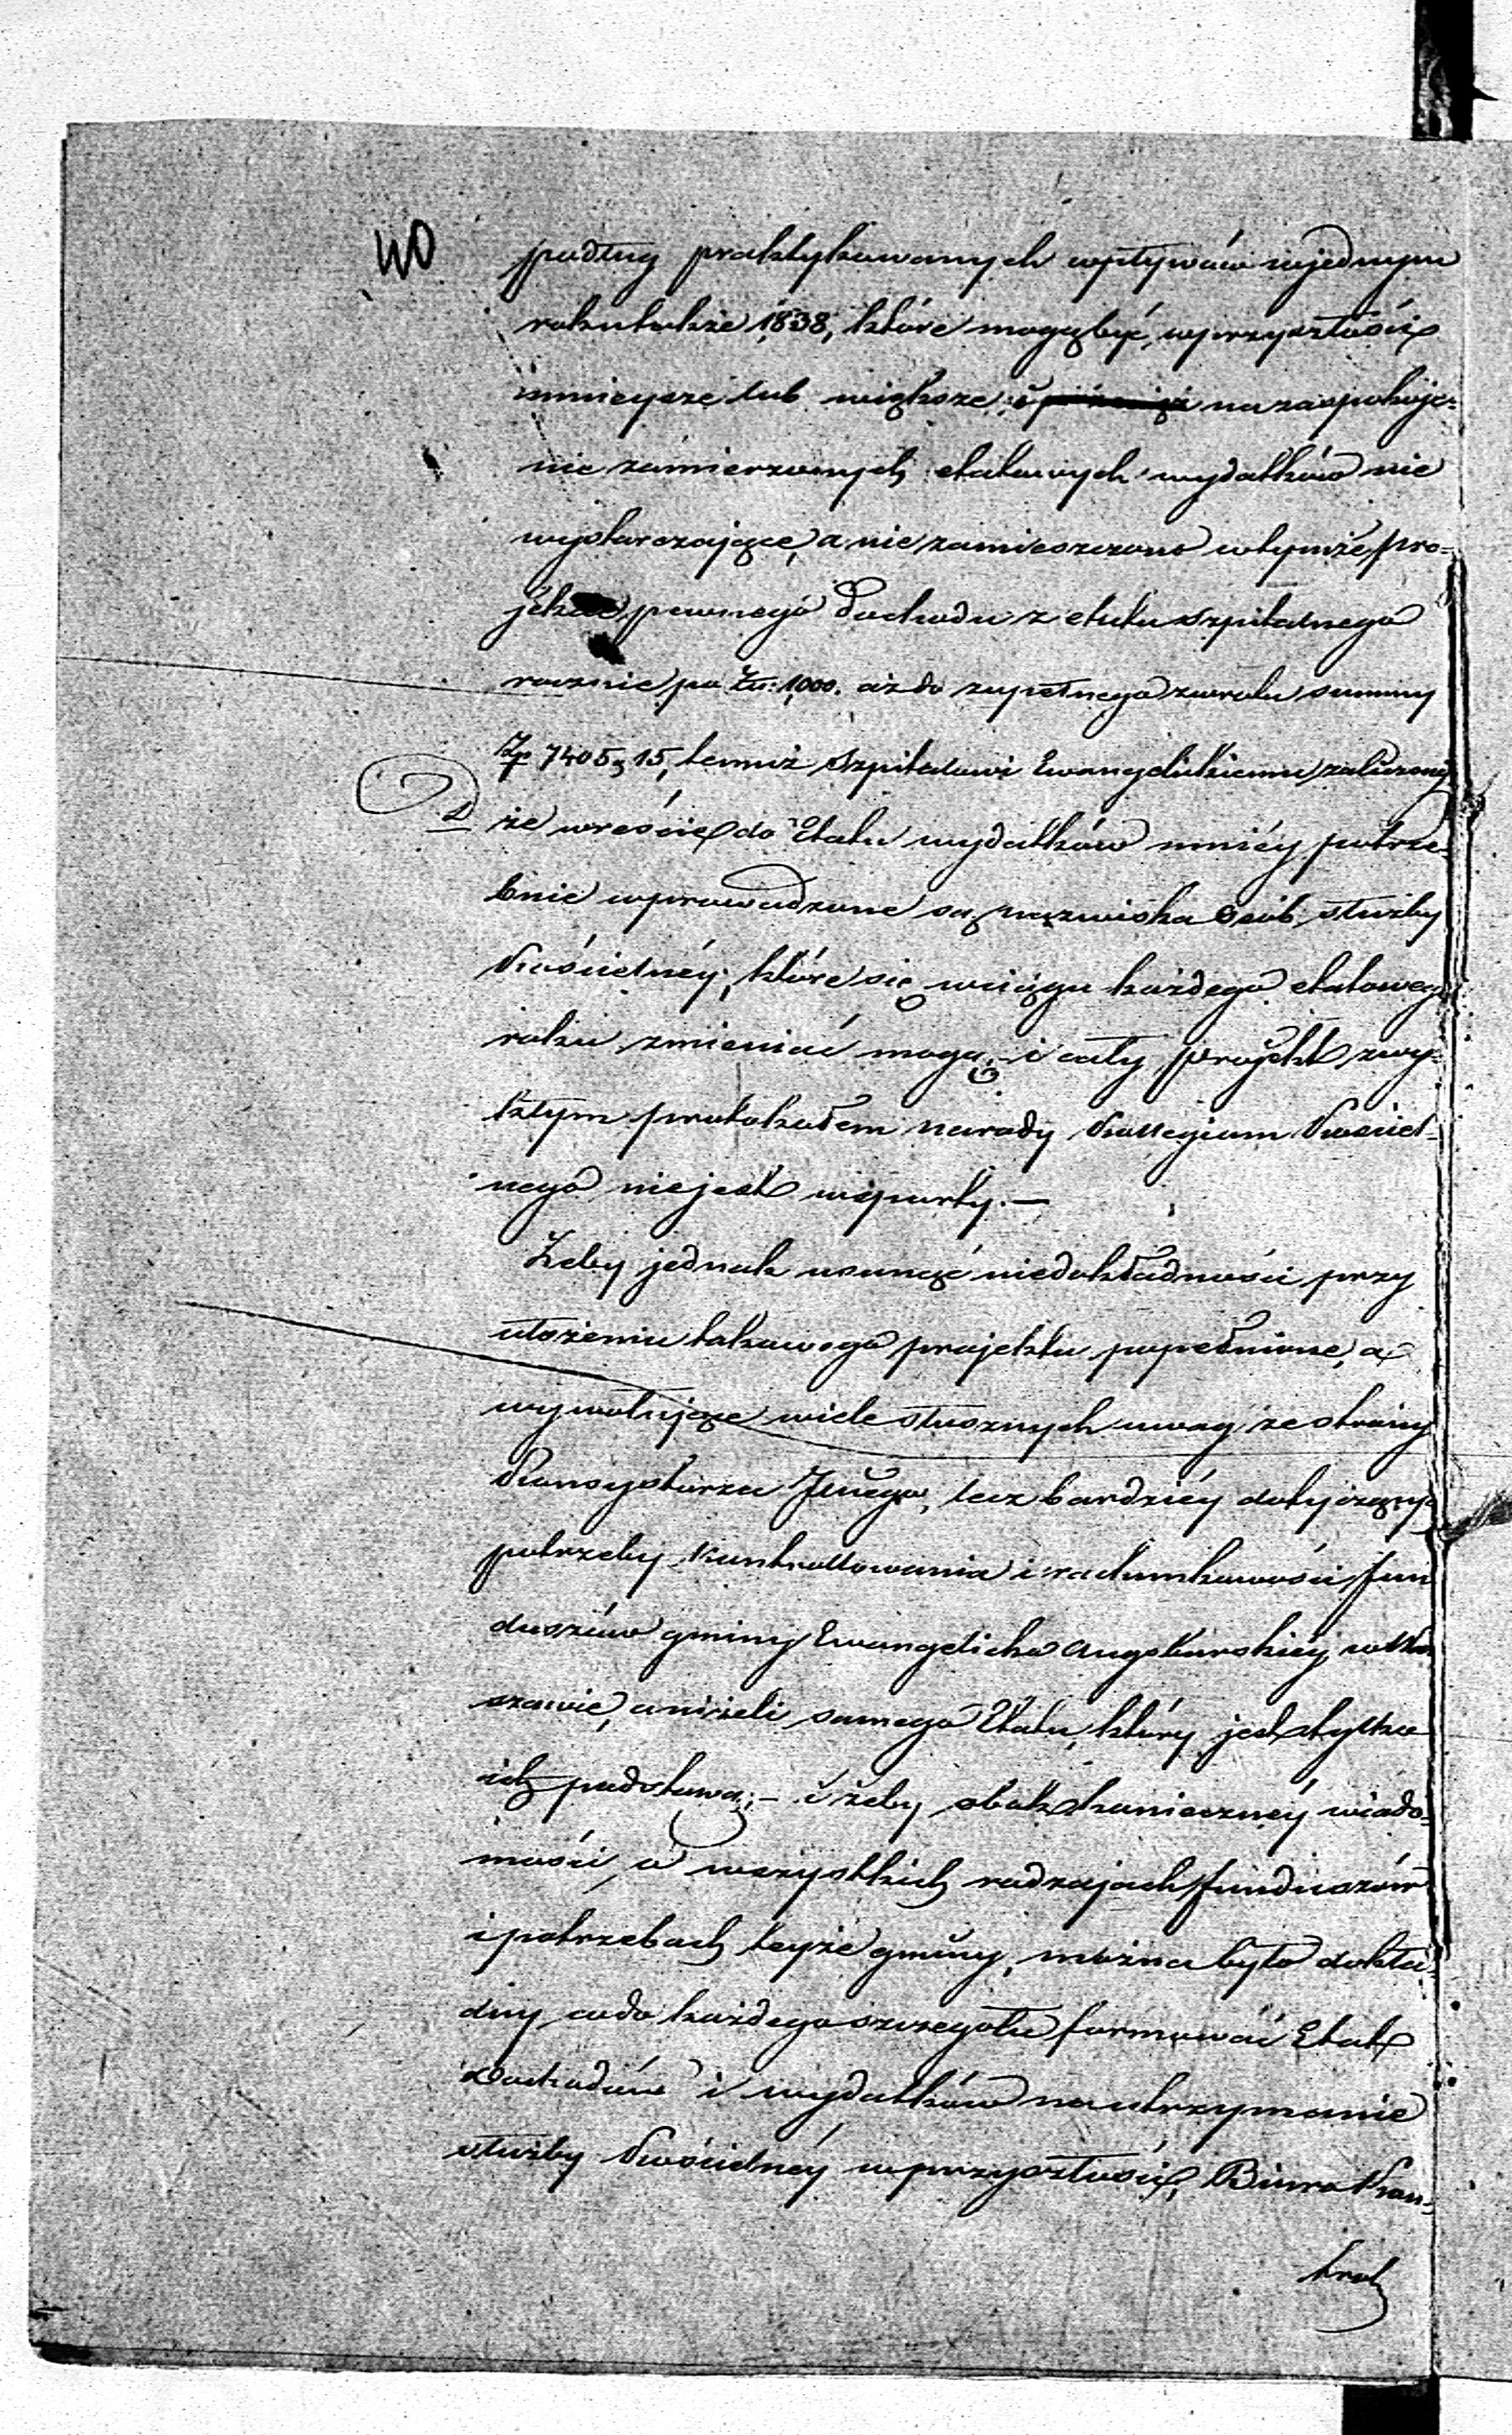 40
podług praktykowanych wpływów wjednym
roku także 1838, które mogą być wprzyszłości
mnieysze lub większe i na zaspokoje-
nie zamierzonych etatowych wydatków nie
wystarczające, a nie zamieszczono wtymże pro-
jekcie pewnego Dochodu z etatu szpitalnego
rocznie po Zł: 1,000. aż do zupełnego zwrotu summy
Zp 7405 g 15, temuż Szpitalowi Ewangelickiemu zaliczoney
że wreście do Etatu wydatków mniéy potrze-
bnie wprowadzone są nazwiska Osób służby
Kościelnéy, które się wciągu każdego etatowego
roku zmieniać mogą,- i cały projekt zwy-
kłym protokołem narady Kollegium Kościel-
nego nie jest wsparty.—
Żeby jednak usunąć niedokładności przy
ułożeniu takowego projektu popełnione, a
wywołujące wiele słusznych uwag ze strony
Konsystorza Jlnego, lecz bardziéy dotyczących
potrzeby Kontrollowania i rachunkowości Fun
duszów gminy Ewangelicko Augsburskiéy w War
szawie, aniżeli samego Etatu, który jest tylko
ich podstawą;- i żeby obok koniecznéy wiado-
mości, o wszystkich rodzajach funduszów
i potrzebach teyże gminy, można było dokła-
dny co do każdego szczegółu formować Etat
Dochodów i wydatków na utrzymanie
służby Kościelnéy w przyszłości, Biuro Kon-
trol